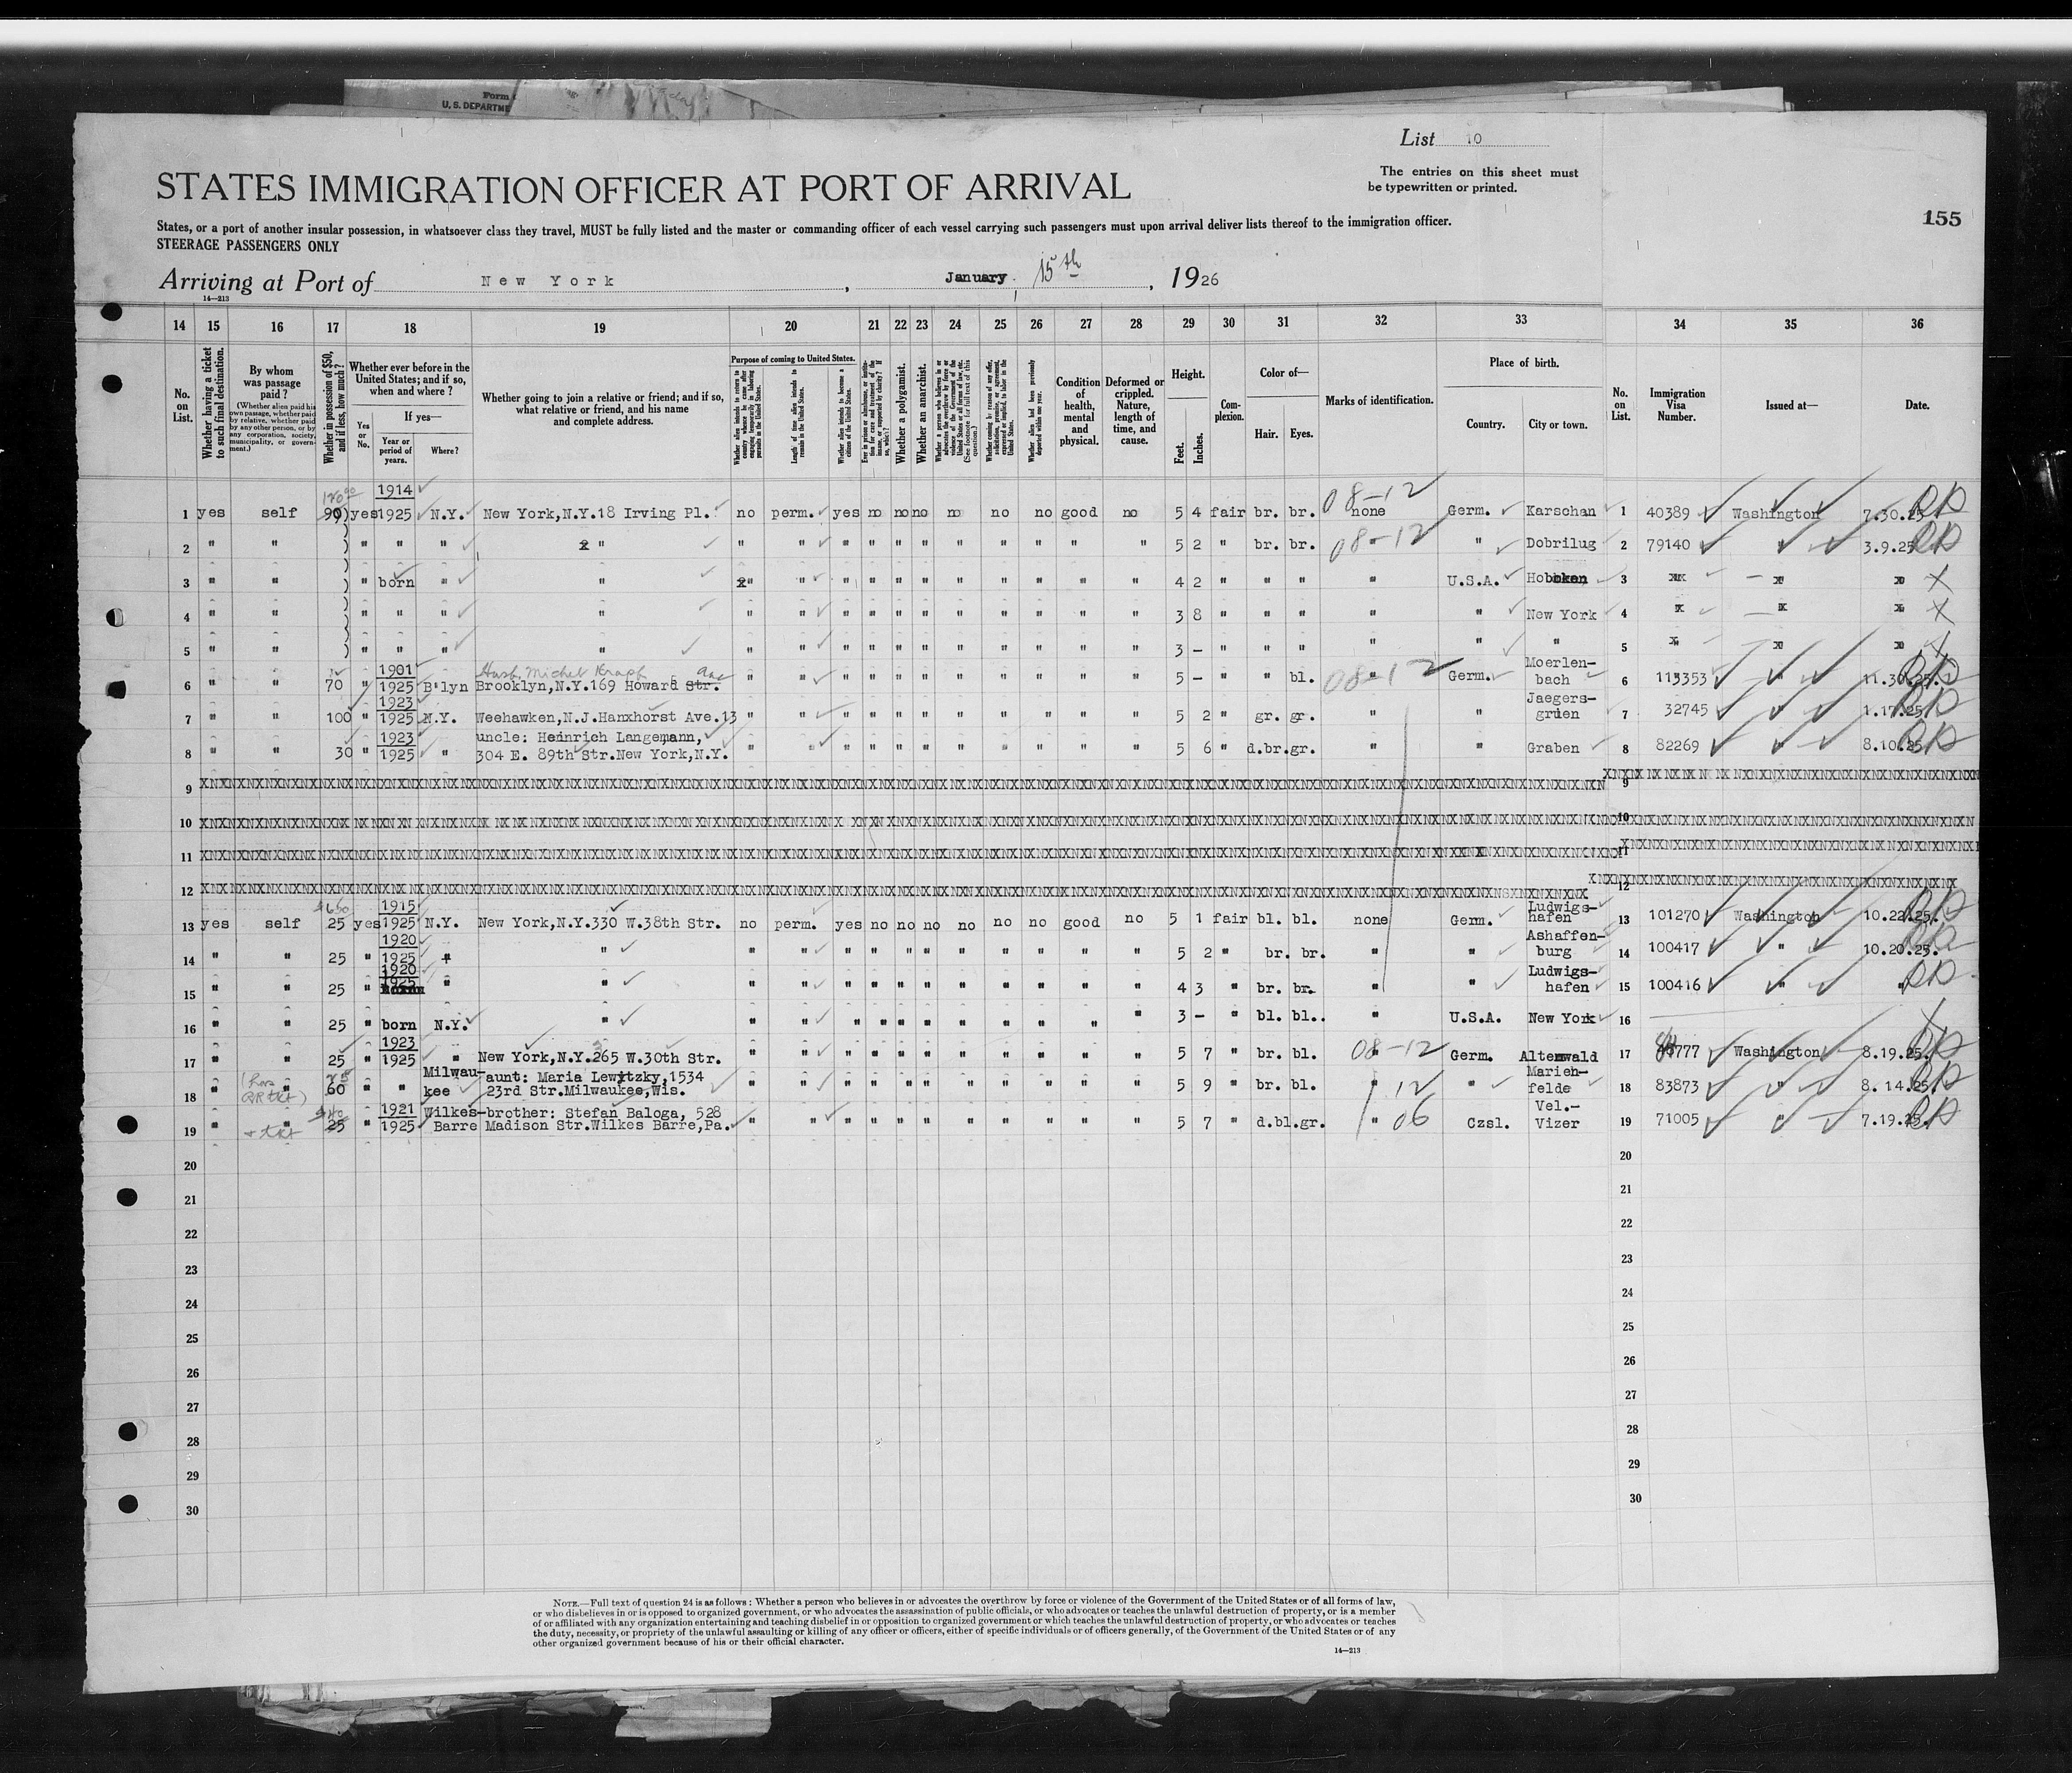 Form
U. S. DEPARTME
List 10
The entries on this sheet must
be typewritten or printed.
STATES IMMIGRATION OFFICER AT PORT OF ARRIVAL
155
States, or a port of another insular possession, in whatsoever class they travel, MUST be fully listed and the master or commanding officer of each vessel carrying such passengers must upon arrival deliver lists thereof to the immigration officer.
STEERAGE PASSENGERS ONLY
Arriving at Port of New York, January 15th, 1926
14—213
14 15 16 17 18 19 20 21 22 23 24 25 26 27 28 29 30 31 32 33 34 35 36
No. on List.
Whether having a ticket to such final destination.
By whom was passage paid?
(Whether alien paid his own passage, whether paid by relative, whether paid by any other person, or by any corporation, society, municipality, or government.)
Whether in possession of $50, and if less, how much?
Whether ever before in the United States; and if so, when and where?
Yes or No.
If yes—
Year or period of years.
Where?
Whether going to join a relative or friend; and if so, what relative or friend, and his name and complete address.
Purpose of coming to United States.
Whether alien intends to return to country whence he came after engaging temporarily in laboring pursuits in the United States.
Length of time alien intends to remain in the United States.
Whether alien intends to become a citizen of the United States.
Ever in prison or almshouse, or institution for care and treatment of the insane, or supported by charity? If so, which?
Whether a polygamist.
Whether an anarchist.
Whether a person who believes in or advocates the overthrow by force or violence of the Government of the United States or all forms of law, etc. (See footnote for full text of this question.)
Whether coming by reason of any offer, solicitation, promise, or agreement, expressed or implied, to labor in the United States.
Whether alien had been previously deported within one year.
Condition of health, mental and physical.
Deformed or crippled. Nature, length of time, and cause.
Height.
Feet. Inches.
Complexion.
Color of—
Hair. Eyes.
Marks of identification.
Place of birth.
Country. City or town.
No. on List.
Immigration Visa Number.
Issued at—
Date.
1 yes self 120.00 90) yes 1914 1925 N.Y. New York,N.Y.18 Irving Pl. no perm. yes no no no no no no good no 5 4 fair br. br. 08-12 none Germ. Karschan 1 40389 Washington 7.30.25
2 " " " " " " " " " " " " " " " " " " 5 2 " br. br. 08-12 " " Dobrilug 2 79140 " 3.9.25
3 " " " born " " " " " " " " " " " " " 4 2 " " " " U.S.A. Hoboken 3
4 " " " " " " " " " " " " " " " " " 3 8 " " " " " New York 4
5 " " " " " " " " " " " " " " " " " 3 – " " " " " " 5
6 " " 70 " 1901 1925 B'lyn Husb. Michel Krapf Brooklyn,N.Y.169 Howard Str. ave " " " " " " " " " " " 5 – " " bl. 08-12 " Germ. Moerlenbach 6 113353 " 11.30.25.
7 " " 100 " 1923 1925 N.Y. Weehawken,N.J.Hanxhorst Ave.13 " " " " " " " " " " " 5 2 " gr. gr. " " Jaegersgrien 7 32745 " 1.17.25
8 " " 30 " 1923 1925 " uncle: Heinrich Langemann, 304 E. 89th Str.New York,N.Y. " " " " " " " " " " " 5 6 " d.br.gr. " " Graben 8 82269 " 8.10.25
9
10
11
12
13 yes self 25 yes 1915 1925 N.Y. New York,N.Y.330 W.38th Str. no perm. yes no no no no no no good no 5 1 fair bl. bl. none Germ. Ludwigshafen 13 101270 Washington 10.22.25.
14 " " 25 " 1920 1925 " " " " " " " " " " " " " 5 2 " br. br. " " Ashaffenburg 14 100417 " 10.20.25.
15 " " 25 " 1920 1925 " " " " " " " " " " " " " 4 3 " br. br. " " Ludwigshafen 15 100416 " "
16 " " 25 " born N.Y. " " " " " " " " " " " " 3 – " bl. bl.. " U.S.A. New York 16
17 " " 25 " 1923 1925 " New York,N.Y.265 W.30th Str. " " " " " " " " " " " 5 7 " br. bl. 08-12 " Germ. Altenwald 17 Washington 8.19.25.
18 " " 75 60 " " Milwaukee aunt: Maria Lewytzky,1534 23rd Str.Milwaukee,Wis. " " " " " " " " " " " 5 9 " br. bl. " 12 " Marienfelde 18 83873 " 8.14.25.
19 " " 25 " 1921 1925 Wilkes-Barre brother: Stefan Baloga, 528 Madison Str.Wilkes Barre,Pa. " " " " " " " " " " " 5 7 " d.bl.gr. " 06 Czsl. Vel.-Vizer 19 71005 " 7.19.25.
20 20
21 21
22 22
23 23
24 24
25 25
26 26
27 27
28 28
29 29
30 30
NOTE.—Full text of question 24 is as follows: Whether a person who believes in or advocates the overthrow by force or violence of the Government of the United States or of all forms of law,
or who disbelieves in or is opposed to organized government, or who advocates the assassination of public officials, or who advocates or teaches the unlawful destruction of property, or is a member
of or affiliated with any organization entertaining and teaching disbelief in or opposition to organized government or which teaches the unlawful destruction of property, or who advocates or teaches
the duty, necessity, or propriety of the unlawful assaulting or killing of any officer or officers, either of specific individuals or of officers generally, of the Government of the United States or of any
other organized government because of his or their official character.
14—213